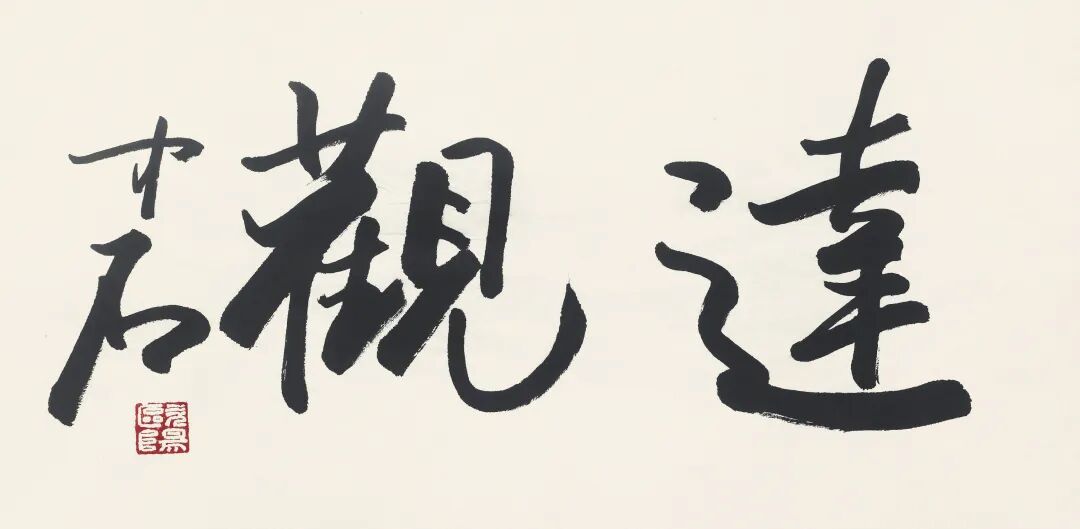 達觀
中石